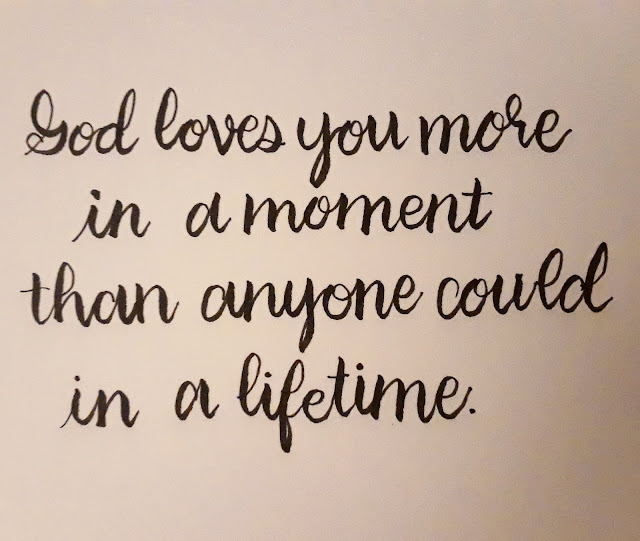 God loves you more
in a moment
than anyone could
in a lifetime.